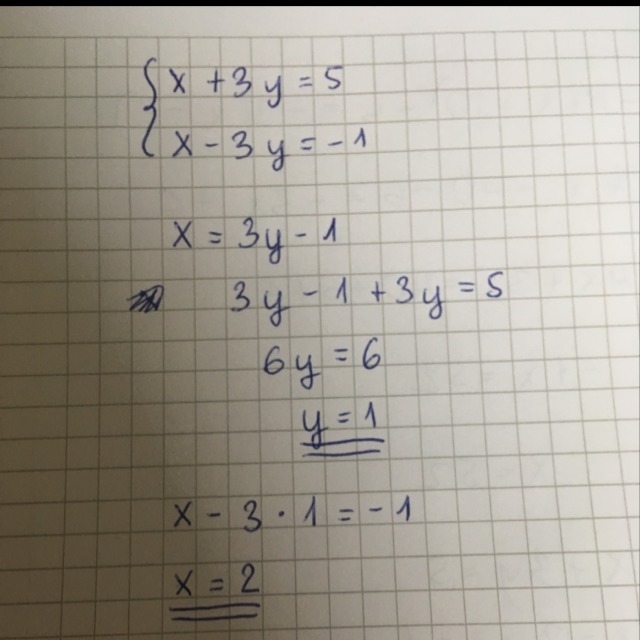 x + 3y = 5
x - 3y = -1
x = 3y - 1
3y - 1 + 3y = 5
6y = 6
y = 1
x - 3 · 1 = -1
x = 2